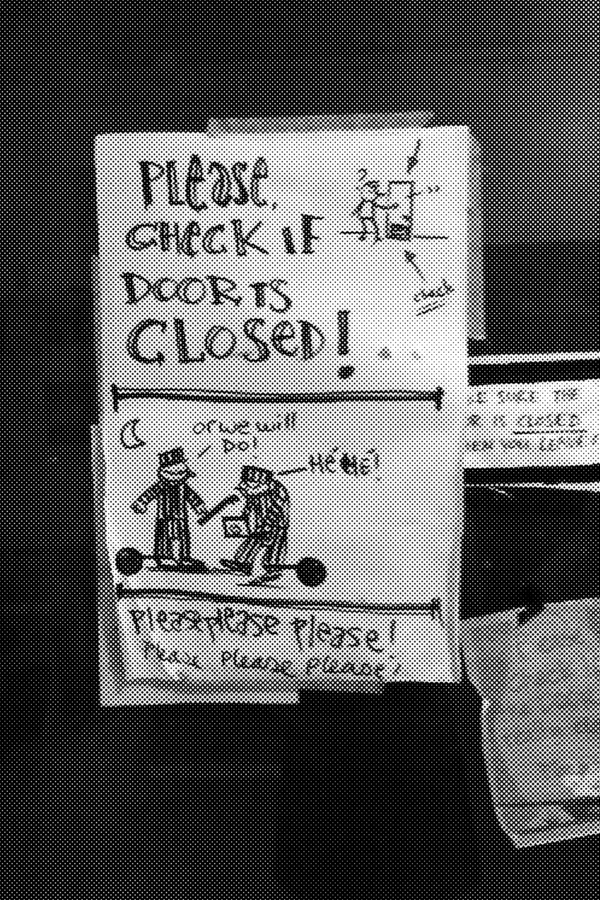 PLease,
CHECK IF
DOOR IS
CLOSED!
check
or we will
DO!
HÉ HÉ!
Please please please!
Please please please!
SURE THE
IS CLOSED
WHEN YOU LEAVE